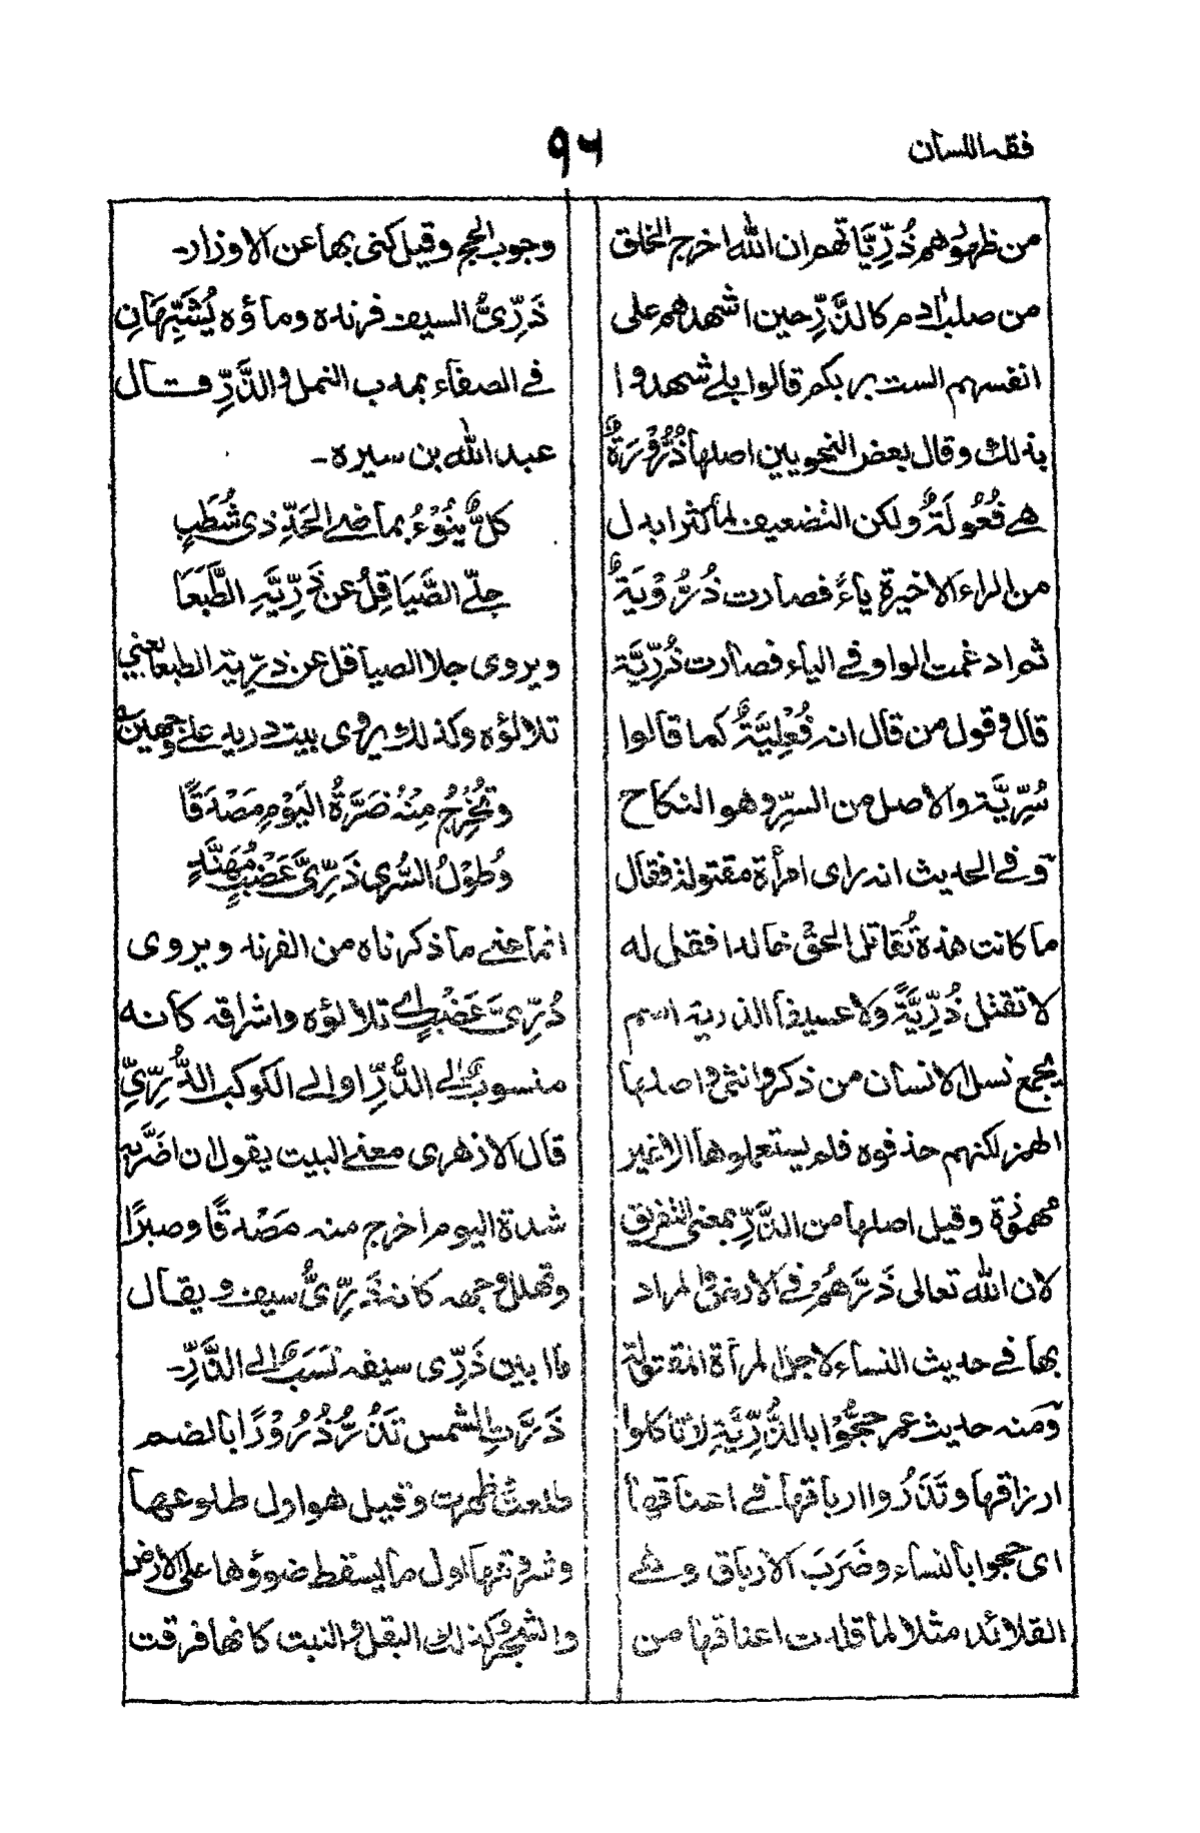 فقہ اللسان
٩٦
من ظهورهم ذُرِّيَّاتهم ان الله اخرج الخلق
من صلب اٰدم كالذَّرِّ حين اشهدهم على
انفسهم الست بربكم قالوا بلے شهدوا
بذلك وقال بعض النحويين اصلها ذُرُّوْرَةٌ
هے فُعُّولَةٌ ولكن التضعيف لما كثر ابدل
من الراء الاخيرة ياءً فصارت ذُرُّوْيَةٌ
ثم ادغمت الواو فے الياء فصارت ذُرِّيَّة
قال وقول من قال انه فُعْلِيَّةٌ كما قالوا
سُرِّيَّة والاصل من السِّرِّ وهو النكاح
وفے الحديث انه رای امرأة مقتولة فقال
ما كانت هذه تُقاتل الحق خالدا فقل له
لا تقتل ذُرِّيَّةً ولا عسيفاً الذرية اسم
يجمع نسل الانسان من ذكر وانثى واصلها
الهمز لكنهم حذفوه فلم يستعملوها الا غير
مهموزة وقيل اصلها من الذَّرِّ بمعنى التفريق
لان الله تعالى ذَرَّهُمْ فے الارض والمراد
بها فے حديث النساء لاجل المرأة المقتولة
ومنه حديث عمر حجُّوْا بالذُّرِّيَّةِ لا تاكلوا
ارزاقها وتَذَرُوا ارباقها فے اعناقها
ای حجوا بالنساء وضَرَبَ الارباق وهے
القلائد مثلا لما قلدت اعناقها من
وجوب الحج وقيل كنى بها عن الاوزار۔
ذَرِّیُّ السيف فرنده وماؤه يُشَبَّهَانِ
فے الصفاء بمدب النمل والذَّرِّ قال
عبد الله بن سبرة۔
كلٌّ يَنُوْءُ بماضے الحَدِّ ذی شُطَبٍ
جلّے الصَّيَاقِلُ عن ذَرِّيِّهِ الطَّبَعَا
ويروى جلا الصياقل عن درّيه الطبعا يعني
تلالؤه وكذلك يروى بيت دريد علے وجهين
وتُخْرِجُ مِنْهُ ضَرَّةُ اليَوْمِ مَصْدَقًا
وَطُوْلُ السُّرىٰ ذَرِّیَّ عَضْبٍ مُهَنَّدٍ
انما عنے ما ذكرناه من الفرند ويروى
دُرِّیَّ عَضْبٍ اے تلالؤه واشراقه كانه
منسوبٌ الے الدُّرِّ او الے الكوكب الدُّرِّيِّ
قال الازهرى معنے البيت يقول ان اضَرَّ بہ
شدة اليوم اخرج منه مَصْدقًا وصبرًا
وتهلل وجهه كانه ذَرِّیُّ سيف ويقال
ما ابين ذَرِّی سيفه نَسَبٌ الے الذَّرِّ۔
ذَرَّتِ الشمس تَذُرُّ ذُرُوْرًا بالضم
طلعت وظهرت وقيل هو اول طلوعها
وشروقها اول ما يسقط ضوؤها على الارض
والشجر وكذلك البقل والنبت كانها فرقت